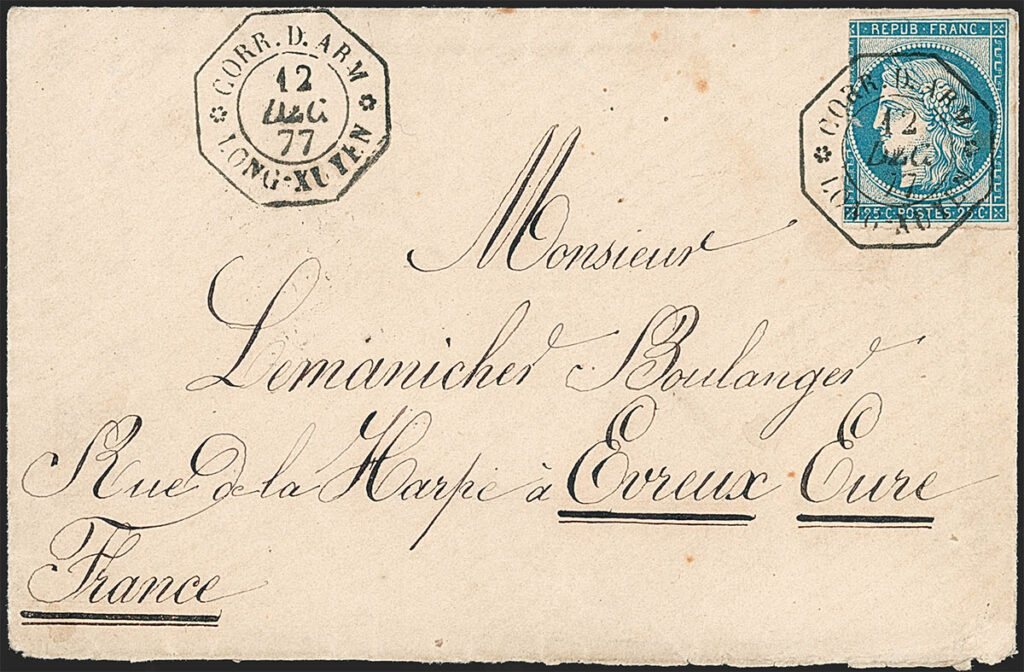 CORR. D. ARM
12
DEC
77
LONG-XUYEN
REPUB. FRANC.
CORR. D. ARM
12
DEC
77
LONG-XUYEN
25 C. POSTES 25 C.
Monsieur
Lemanicher Boulanger
Rue de la Harpe à Evreux Eure
France